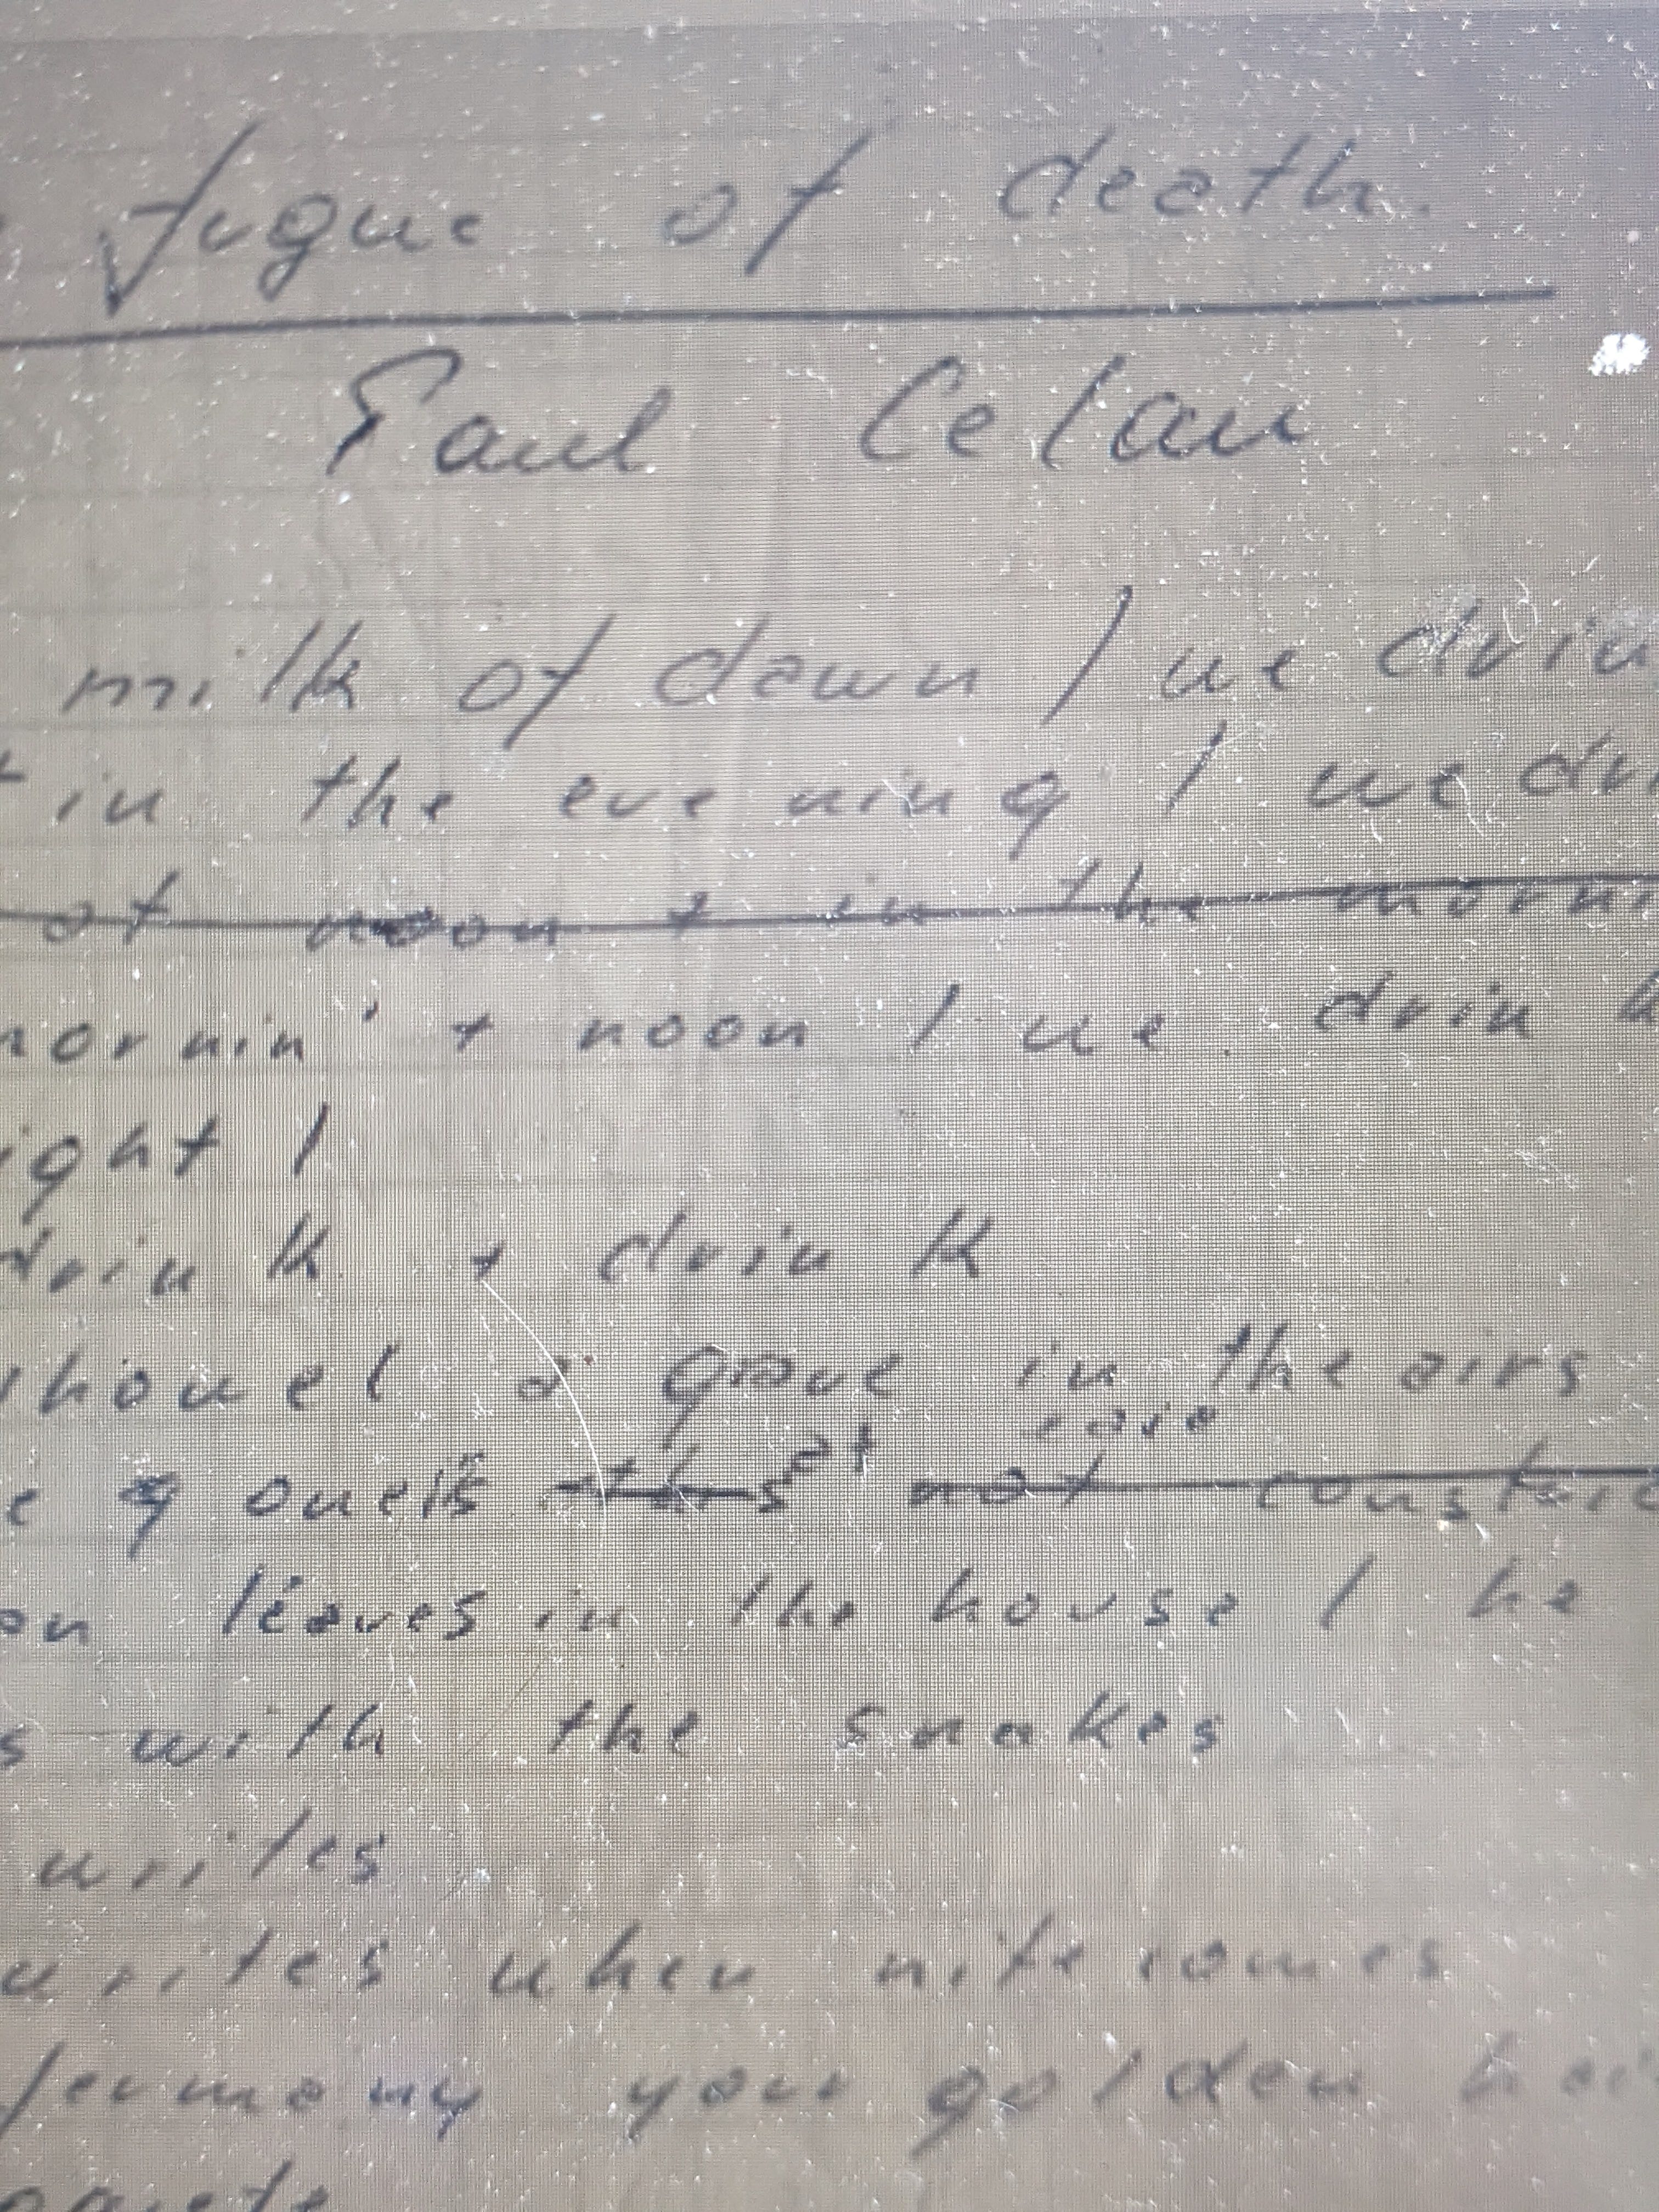 fugue of death.
Paul Celan
milk of dawn / we drin
in the evening / we dri
at noon + in the morni
mornin' + noon / we drink
ight /
drink + drink
shovel a grave in the airs
at
on leaves in the house / he
s with the snakes
writes
writes when nite comes
fermany your golden hai